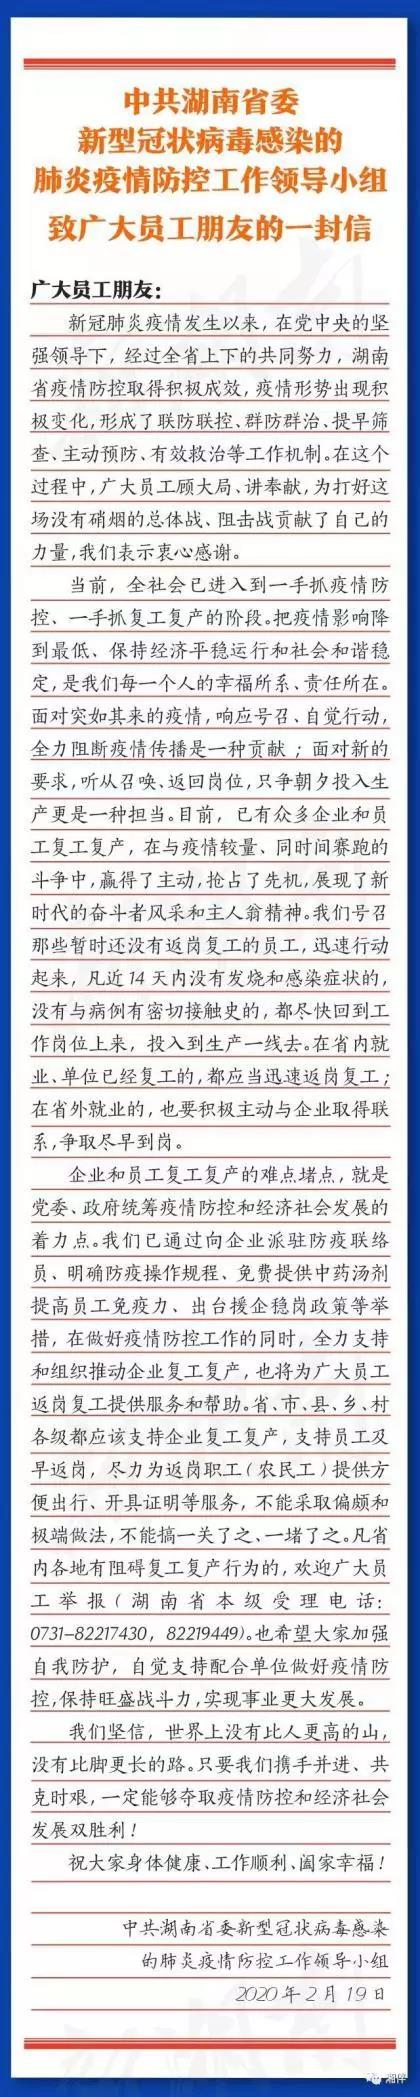 中共湖南省委
新型冠状病毒感染的
肺炎疫情防控工作领导小组
致广大员工朋友的一封信
广大员工朋友：
新冠肺炎疫情发生以来，在党中央的坚
强领导下，经过全省上下的共同努力，湖南
省疫情防控取得积极成效，疫情形势出现积
极变化，形成了联防联控、群防群治、提早筛
查、主动预防、有效救治等工作机制。在这个
过程中，广大员工顾大局、讲奉献，为打好这
场没有硝烟的总体战、阻击战贡献了自己的
力量，我们表示衷心感谢。
当前，全社会已进入到一手抓疫情防
控、一手抓复工复产的阶段。把疫情影响降
到最低、保持经济平稳运行和社会和谐稳
定，是我们每一个人的幸福所系、责任所在。
面对突如其来的疫情，响应号召、自觉行动，
全力阻断疫情传播是一种贡献；面对新的
要求，听从召唤、返回岗位，只争朝夕投入生
产更是一种担当。目前，已有众多企业和员
工复工复产，在与疫情较量、同时间赛跑的
斗争中，赢得了主动，抢占了先机，展现了新
时代的奋斗者风采和主人翁精神。我们号召
那些暂时还没有返岗复工的员工，迅速行动
起来，凡近14天内没有发烧和感染症状的，
没有与病例有密切接触史的，都尽快回到工
作岗位上来，投入到生产一线去。在省内就
业、单位已经复工的，都应当迅速返岗复工；
在省外就业的，也要积极主动与企业取得联
系，争取尽早到岗。
企业和员工复工复产的难点堵点，就是
党委、政府统筹疫情防控和经济社会发展的
着力点。我们已通过向企业派驻防疫联络
员、明确防疫操作规程、免费提供中药汤剂
提高员工免疫力、出台援企稳岗政策等举
措，在做好疫情防控工作的同时，全力支持
和组织推动企业复工复产，也将为广大员工
返岗复工提供服务和帮助。省、市、县、乡、村
各级都应该支持企业复工复产，支持员工及
早返岗，尽力为返岗职工（农民工）提供方
便出行、开具证明等服务，不能采取偏颇和
极端做法，不能搞一关了之、一堵了之。凡省
内各地有阻碍复工复产行为的，欢迎广大员
工举报（湖南省本级受理电话：
0731-82217430，82219449）。也希望大家加强
自我防护，自觉支持配合单位做好疫情防
控，保持旺盛战斗力，实现事业更大发展。
我们坚信，世界上没有比人更高的山，
没有比脚更长的路。只要我们携手并进、共
克时艰，一定能够夺取疫情防控和经济社会
发展双胜利！
祝大家身体健康、工作顺利、阖家幸福！
中共湖南省委新型冠状病毒感染
的肺炎疫情防控工作领导小组
2020年2月19日
湘伴